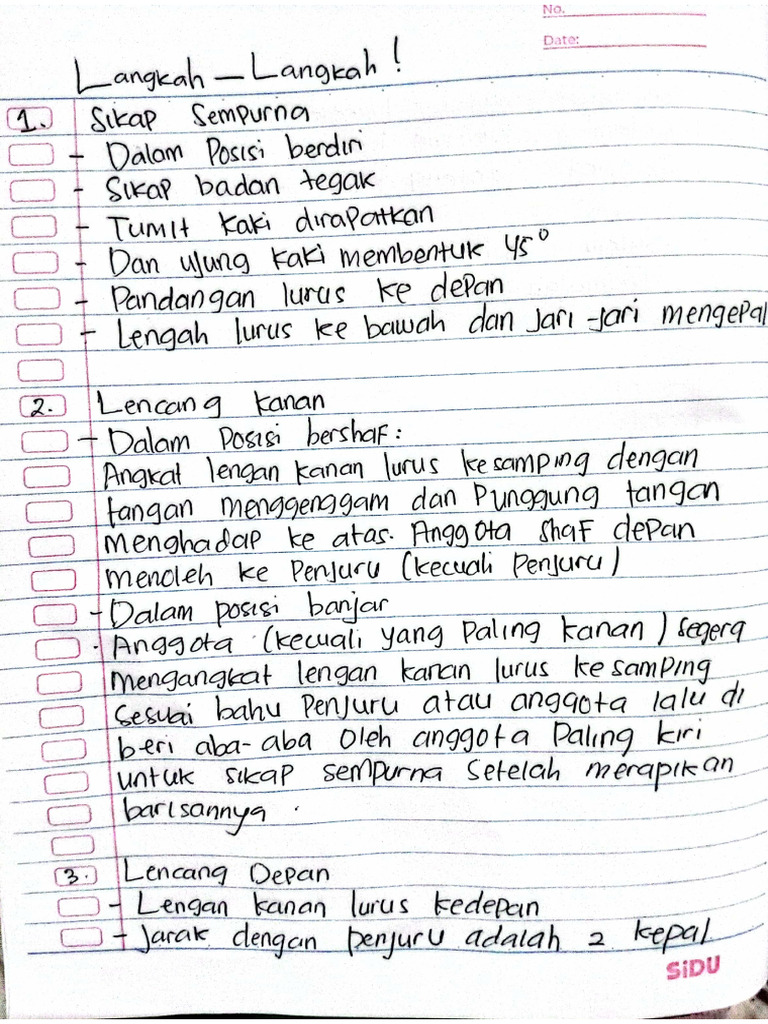 No.
Date:
Langkah - Langkah !
1. Sikap Sempurna
- Dalam Posisi berdiri
- Sikap badan tegak
- Tumit kaki dirapatkan
- Dan ujung kaki membentuk 45°
- Pandangan lurus ke depan
- Lengah lurus ke bawah dan Jari -jari mengepal
2. Lencang kanan
- Dalam Posisi bershaf :
Angkat lengan kanan lurus kesamping dengan
tangan menggenggam dan Punggung tangan
menghadap ke atas. Anggota shaf depan
menoleh ke Penjuru (kecuali Penjuru)
- Dalam posisi banjar
. Anggota (kecuali yang Paling kanan) segera
mengangkat lengan kanan lurus kesamping
sesuai bahu Penjuru atau anggota lalu di
beri aba-aba oleh anggota Paling kiri
untuk sikap sempurna setelah merapikan
barisannya .
3. Lencang Depan
- Lengan kanan lurus kedepan
- Jarak dengan penjuru adalah 2 kepal
SiDU